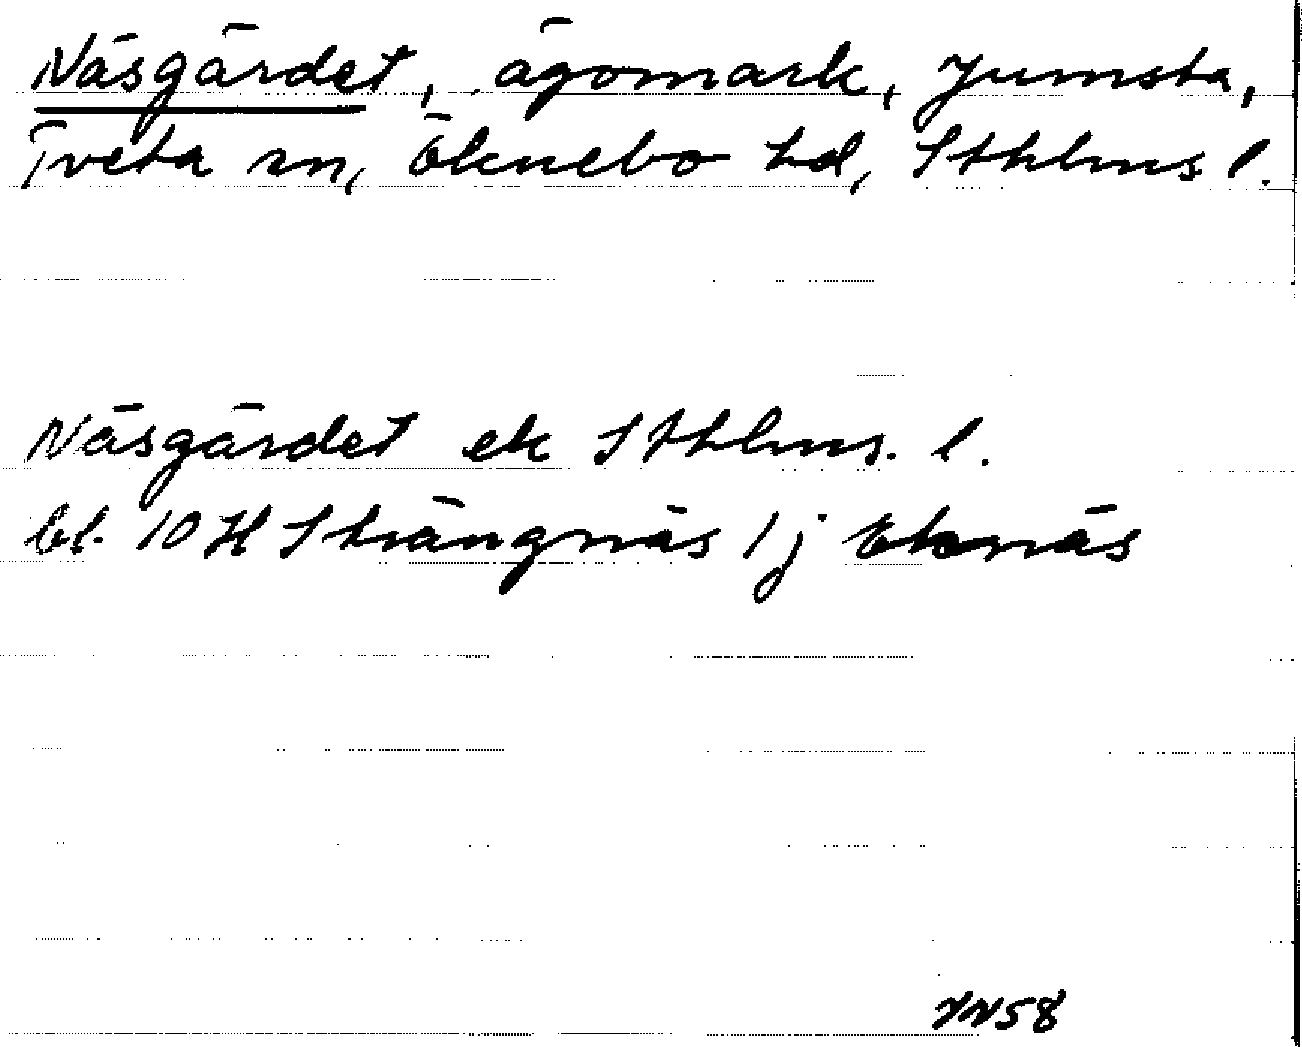 Näsgärdet, ägomark, Jumsta,
Tveta sn, Öknebo hd, Sthlms l.
Näsgärdet ek Sthlms. l.
bl. 10 H Strängnäs 1 j Eknäs